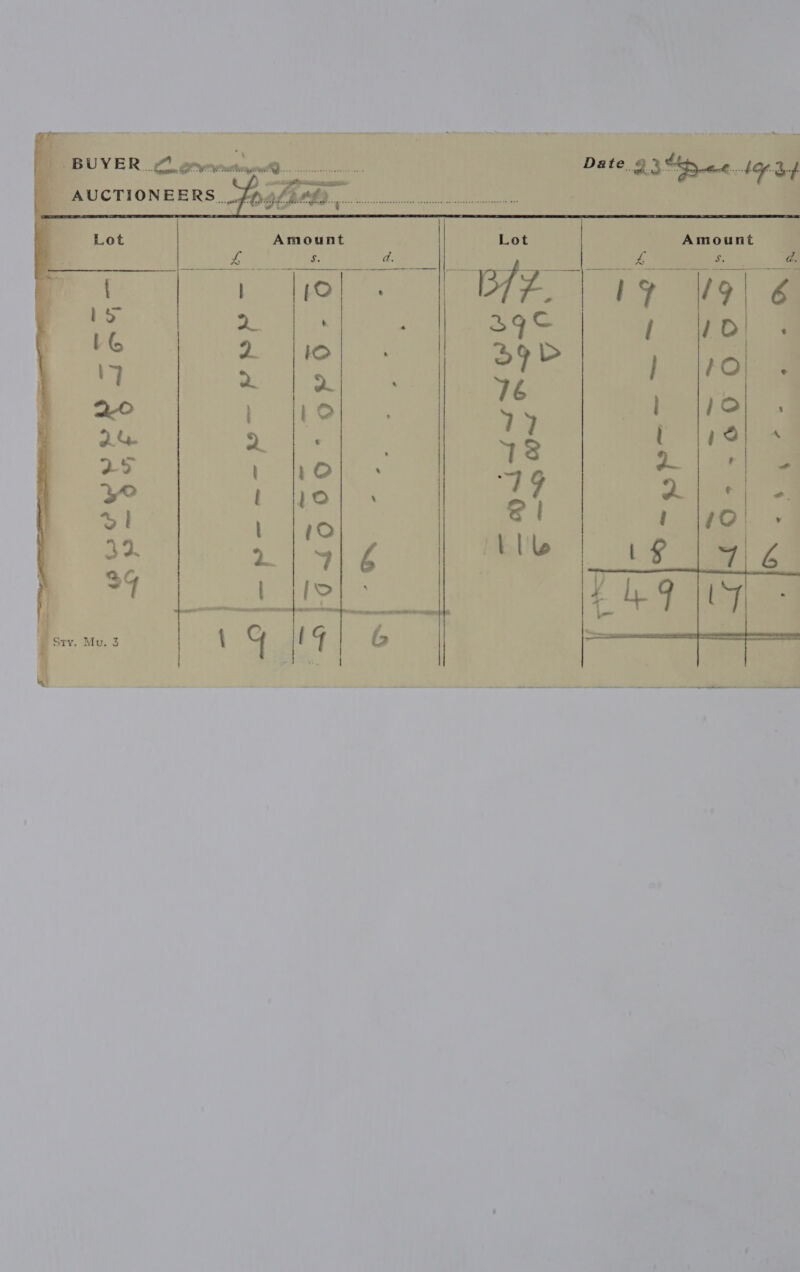 BUYER
Date 23 Dec
AUCTIONEERS
Lot Amount Lot Amount
£ s. d. £ s. d.
1 1 10 . B/f. 19 19 6
15 2 . . 39C 1 10 .
16 2 10 . 39D 1 10 .
17 2 2 . 76 1 10 .
20 1 10 . 77 1 10 .
24 2 . . 78 2 . .
25 1 10 . 79 2 . .
30 1 10 . 81 1 10 .
31 1 10 116 18 7 6
32 2 7 6
39 1 10 . £49 17 .
Sty. Mu. 3 19 19 6